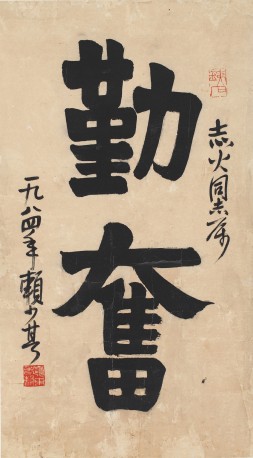 勤奮
志火同志属
一九八四年賴少其